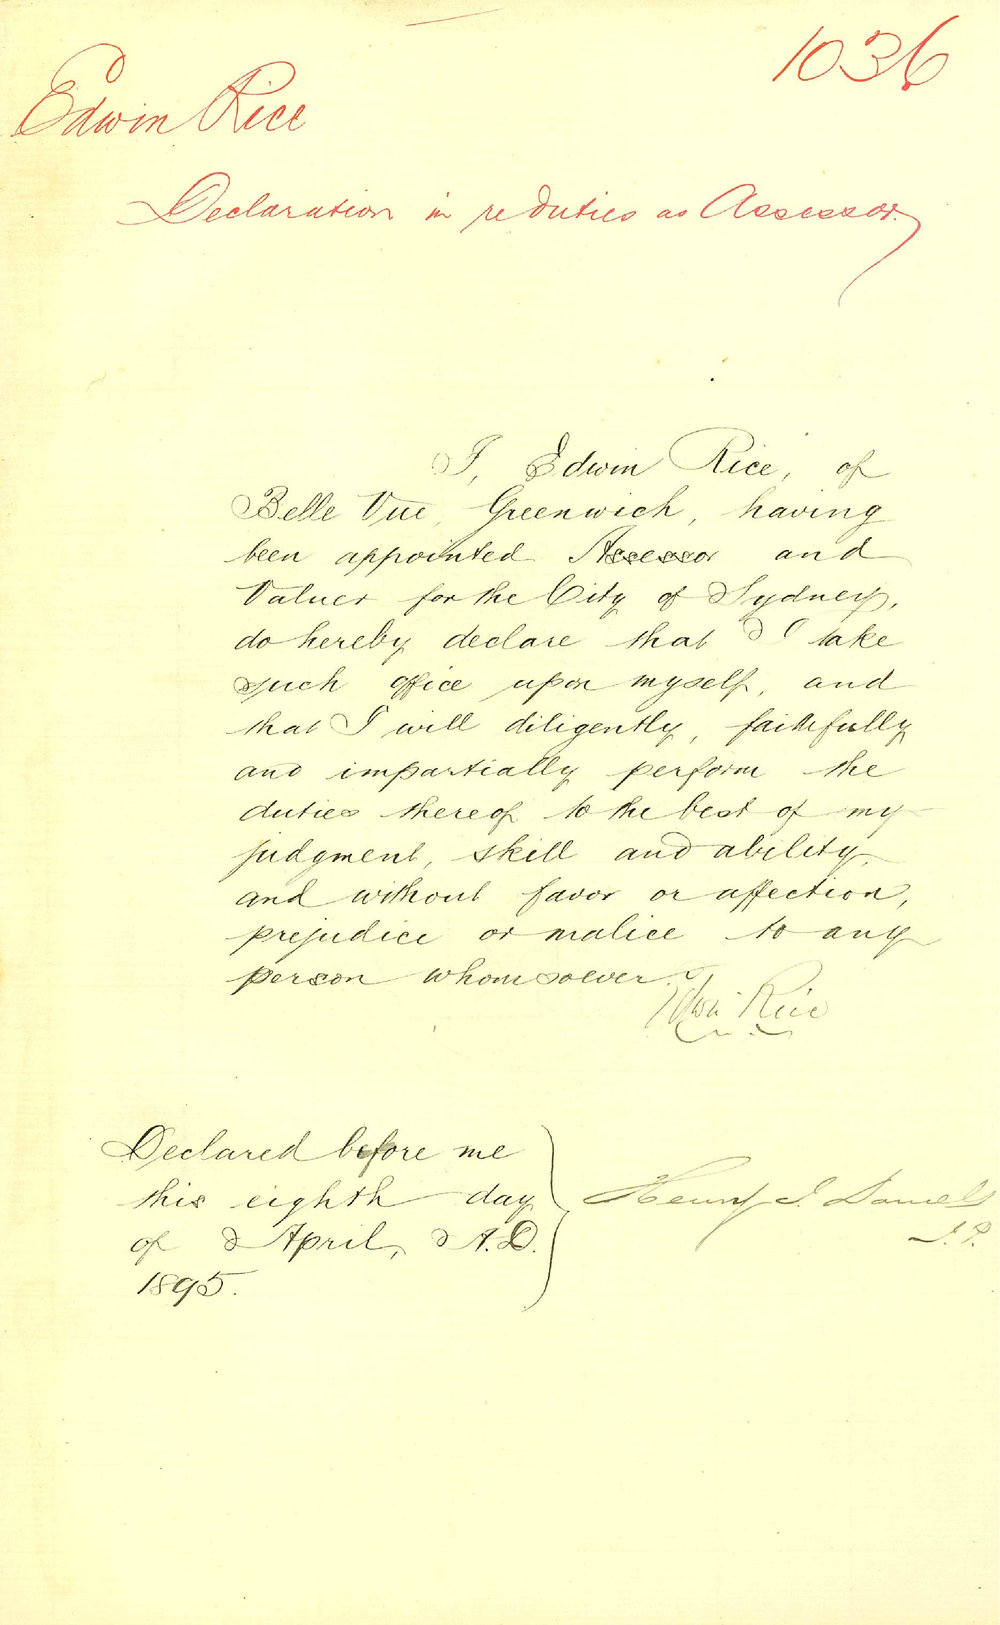 1036
Edwin Rice
Declaration in re duties as Assessor.
I, Edwin Rice, of
Belle Vue, Greenwich, having
been appointed Assessor and
Valuer for the City of Sydney,
do hereby declare that I take
such office upon myself, and
that I will diligently, faithfully
and impartially perform the
duties thereof to the best of my
judgment, skill and ability,
and without favor or affection,
prejudice or malice to any
person whomsoever.
Edwin Rice
Declared before me
this eighth day
of April, A.D.
1895.
Henry J. Daniels
J.P.